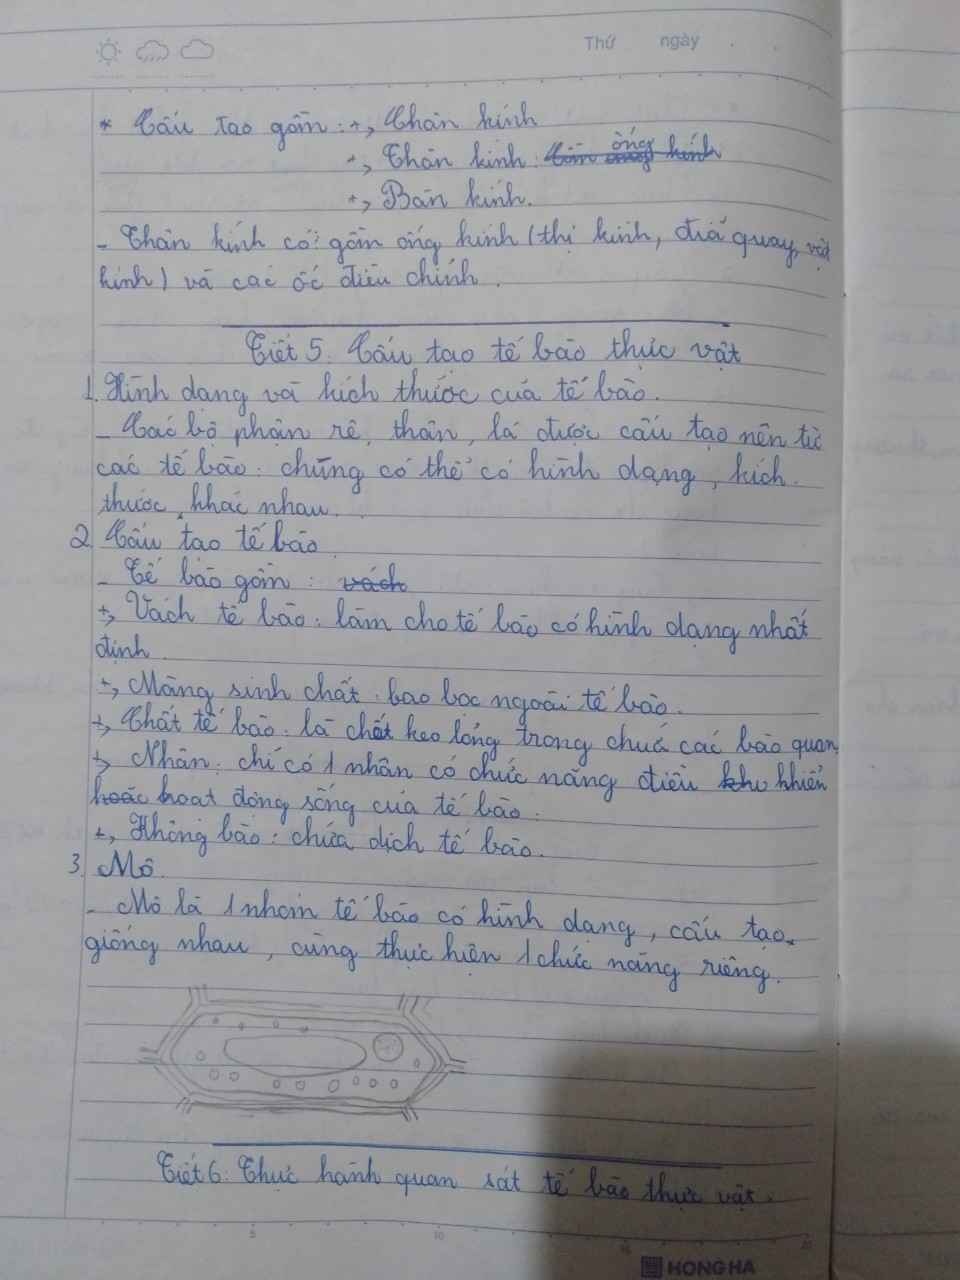 Thứ ngày
* Cấu tạo gồm: +, Chân kính
+, Thân kính: gồm ống kính
+, Bàn kính.
- Thân kính có: gồm ống kính (thị kính, đĩa quay, vật
kính) và các ốc điều chỉnh.
Tiết 5: Cấu tạo tế bào thực vật
1. Hình dạng và kích thước của tế bào.
- Các bộ phận rễ, thân, lá được cấu tạo nên từ
các tế bào. chúng có thể có hình dạng, kích
thước khác nhau.
2. Cấu tạo tế bào
- Tế bào gồm: vách
+, Vách tế bào: làm cho tế bào có hình dạng nhất
định
+, Màng sinh chất: bao bọc ngoài tế bào.
+, Chất tế bào: là chất keo lỏng trong chứa các bào quan
+, Nhân: chỉ có 1 nhân có chức năng điều khu khiển
hoăc hoạt động sống của tế bào.
+, Không bào: chứa dịch tế bào.
3. Mô.
- Mô là 1 nhóm tế bào có hình dạng, cấu tạo
giống nhau, cùng thực hiện 1 chức năng riêng.
Tiết 6: Thực hành quan sát tế bào thực vật.
5 10 15 20
HONG HA